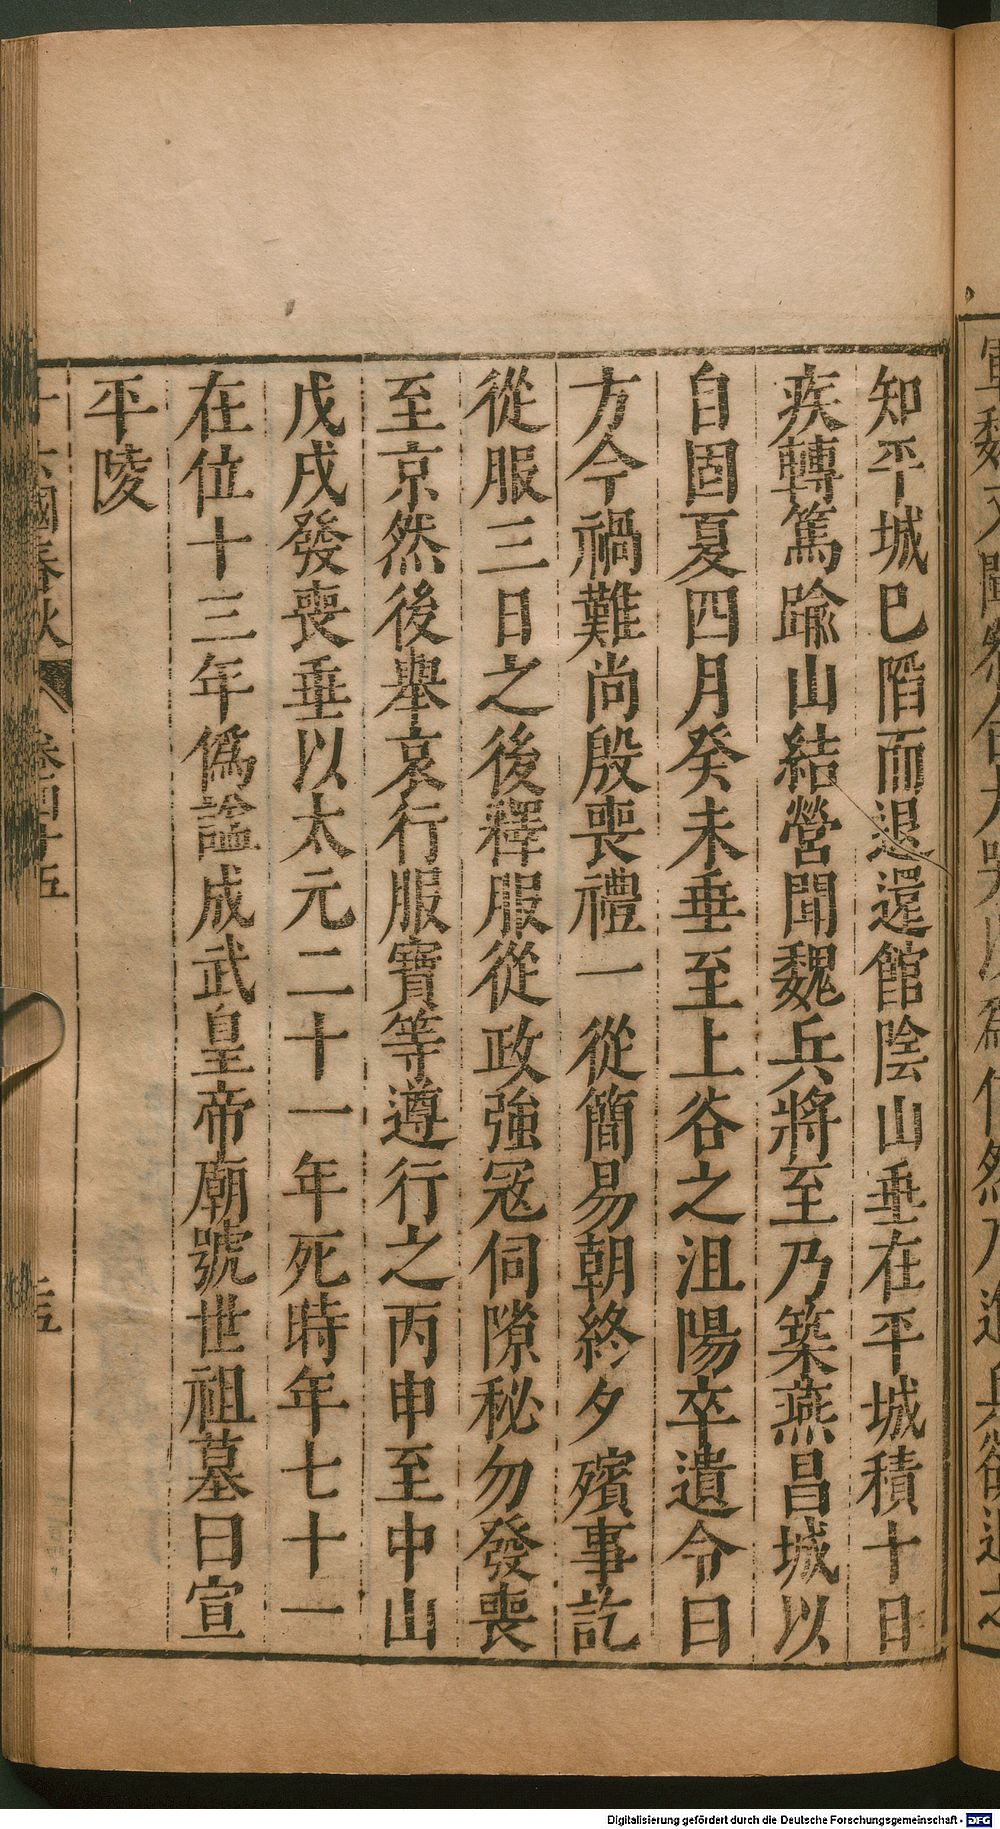 知平城已陷而退還館陰山垂在平城積十日
疾轉篤踰山結營聞魏兵將至乃築燕昌城以
自固夏四月癸未垂至上谷之沮陽卒遺令曰
方今禍難尚殷喪禮一從簡易朝終夕殯事訖
從服三日之後釋服從政強寇伺隙秘勿發喪
至京然後舉哀行服寶等遵行之丙申至中山
戊戌發喪垂以太元二十一年死時年七十一
在位十三年僞諡成武皇帝廟號世祖墓曰宣
平陵
國春秋
Digitalisierung gefördert durch die Deutsche Forschungsgemeinschaft - DFG